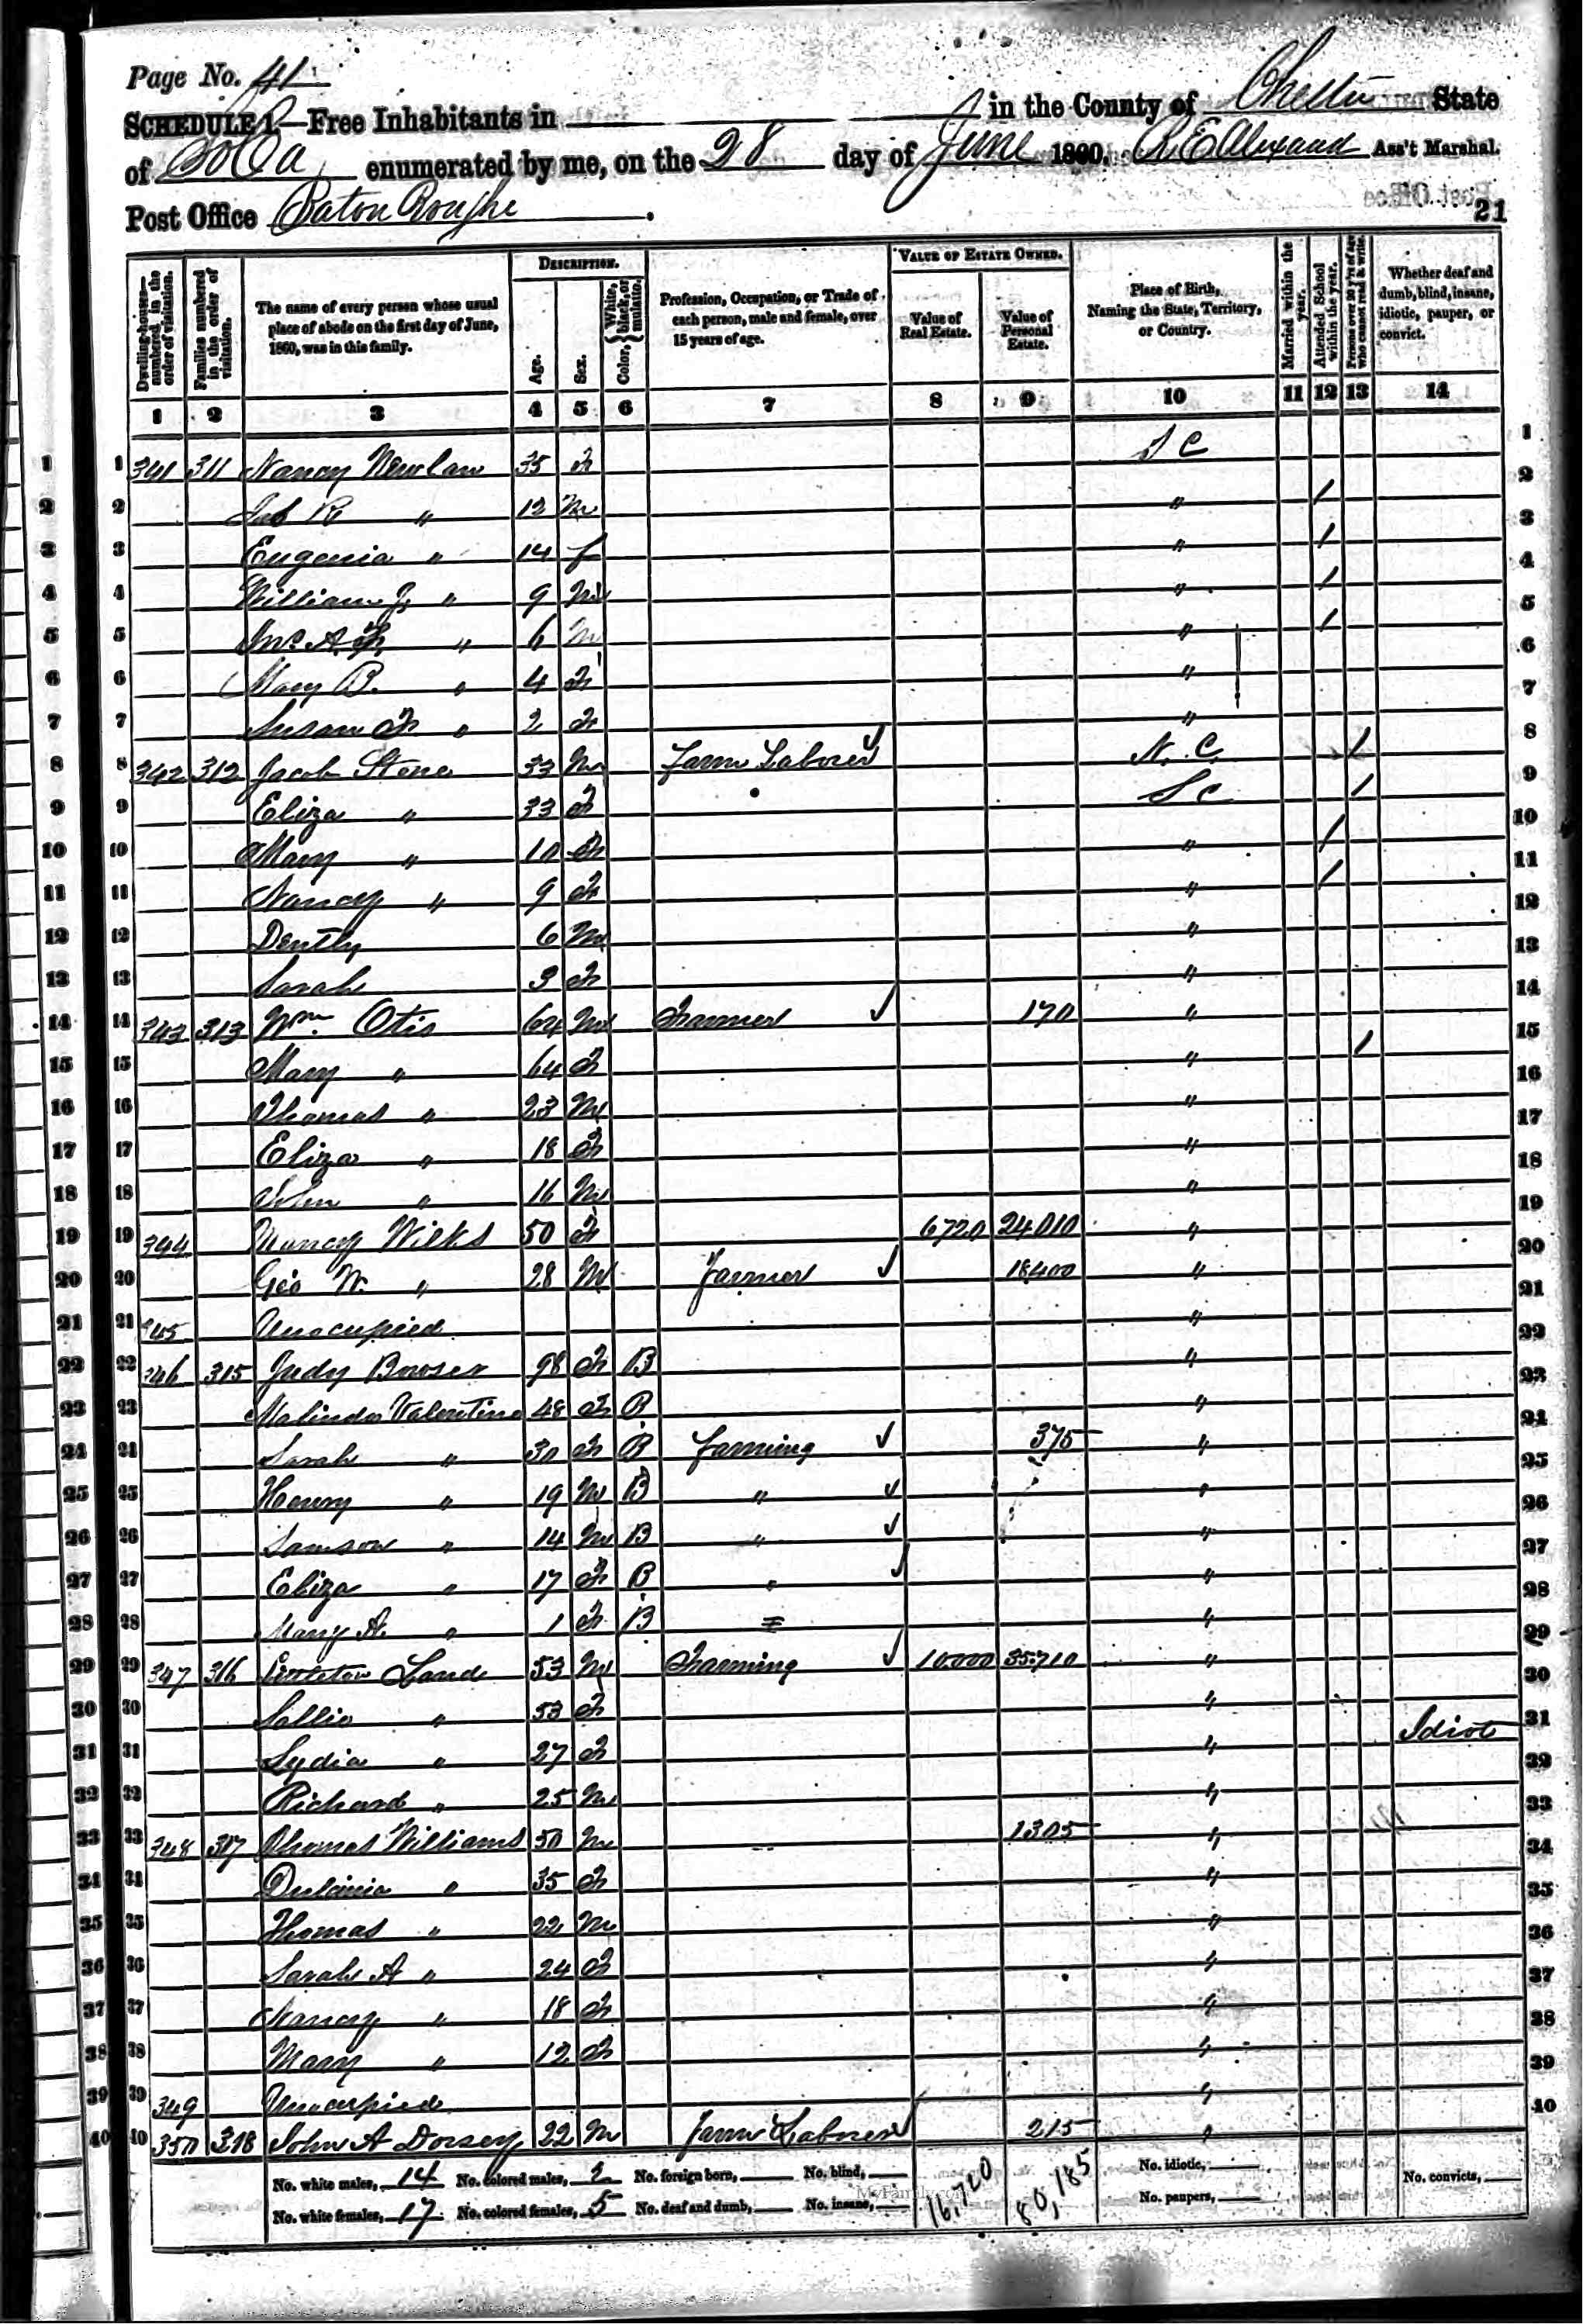 Page No. 41
SCHEDULE 1.—Free Inhabitants in in the County of Chester State
of So Ca enumerated by me, on the 28 day of June 1860. R E Alexand Ass't Marshal.
Post Office Baton Rouge
21
Dwelling-houses—numbered in the order of visitation.
Families numbered in the order of visitation.
The name of every person whose usual place of abode on the first day of June, 1860, was in this family.
DESCRIPTION.
Age.
Sex.
Color, { White, black, or mulatto.
Profession, Occupation, or Trade of each person, male and female, over 15 years of age.
VALUE OF ESTATE OWNED.
Value of Real Estate.
Value of Personal Estate.
Place of Birth, Naming the State, Territory, or Country.
Married within the year.
Attended School within the year.
Persons over 20 y'rs of age who cannot read & write.
Whether deaf and dumb, blind, insane, idiotic, pauper, or convict.
1 2 3 4 5 6 7 8 9 10 11 12 13 14
1 341 311 Nancy 35 F S C
2 R " 12 M " /
3 Eugenia " 14 f " /
4 William J. " 9 M " /
5 Jno. A. F. " 6 M " /
6 Mary B. " 4 F "
7 Susan F " 2 F "
8 342 312 Jacob Stone 33 M Farm Laborer N. C. /
9 Eliza " 33 F S C /
10 Mary " 10 F " /
11 Nancy " 9 F " /
12 Dently 6 M "
13 Sarah 3 F "
14 343 313 Wm. Otis 64 M Farmer 170 "
15 Mary " 64 F " /
16 Thomas " 23 M "
17 Eliza " 18 F "
18 John " 16 M "
19 344 Nancy Wilks 50 F 6720 24010 "
20 Geo W. " 28 M Farmer 18400 "
21 345 Unocupied "
22 346 315 Judy Bowser 98 F B "
23 Malinda Valentine 48 F B "
24 Sarah " 30 F B Farming 375 "
25 Henry " 19 M B " "
26 Samson " 14 M B " "
27 Eliza " 17 F B " "
28 Mary A. " 1 F B "
29 347 316 Land 53 M Farming 10000 35710 "
30 Sallie " 53 F "
31 Lydia " 27 F " Idiot
32 Richard " 25 M "
33 348 317 Thomas Williams 50 M 1305 "
34 Dulcinia " 35 F "
35 Thomas " 22 M "
36 Sarah A " 24 F "
37 Nancy " 18 F "
38 Mary " 12 F "
39 349 Unocupied "
40 350 318 John A Dorsey 22 M Farm Laborer 215 "
No. white males, 14 No. colored males, 2 No. foreign born, No. blind, 16,720 80,185 No. idiotic, No. convicts,
No. white females, 17 No. colored females, 5 No. deaf and dumb, No. insane, No. paupers,